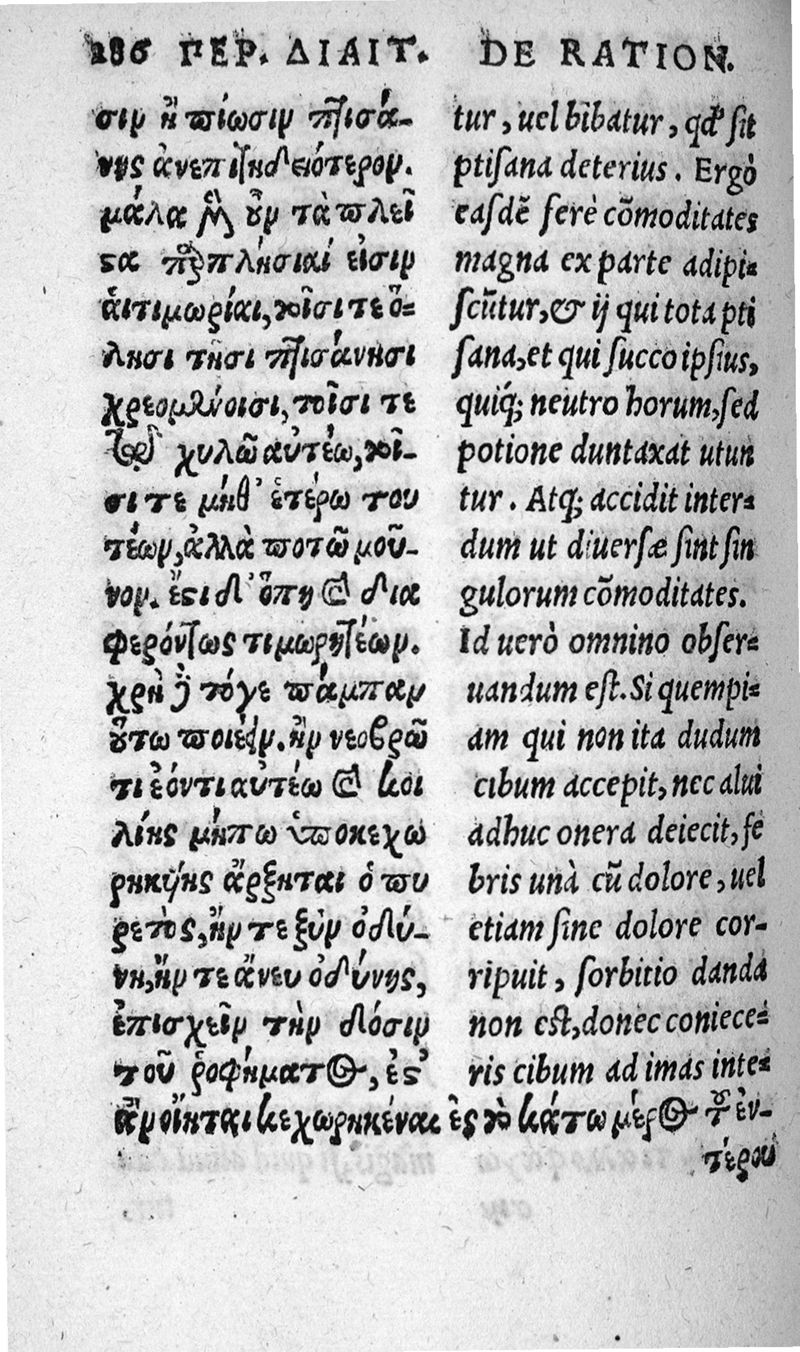 286 ΠΕΡ. ΔΙΑΙΤ. DE RATION.
σιν ἢ πίωσιν πτισά-
νης ἀνεπιτηδειότερον.
μάλα μὲν οὖν τὰ πλεῖ
ςα παραπλήσιαί εἰσιν
αἱ τιμωρίαι, τοῖσί τε ὅ-
λησι τῇσι πτισάνῃσι
χρεομένοισι, τοῖσί τε
τῷ χυλῷ αὐτέω, τοῖ-
σί τε μηθ' ἑτέρω του
τέων, ἀλλὰ ποτῶ μοῦ-
νον. ἔςι δ' ὅπη καὶ δια
φερόντως τιμωρητέων.
χρὴ δὲ τόγε πάμπαν
οὕτω ποιέειν. ἢν νεοβρῶ
τι ἐόντι αὐτέω καὶ κοι
λίης μήπω ὑποκεχω
ρηκυίης ἄρξηται ὁ πυ
ρετὸς, ἤν τε ξὺν ὀδύ-
νη, ἤν τε ἄνευ ὀδύνης,
ἐπισχεῖν τὴν δόσιν
τοῦ ῥοφήματος, ἔς'
ἂν οἴηται κεχωρηκέναι ἐς τὸ κάτω μέρος τοῦ ἐν-
τέρου
tur, uel bibatur, qd' sit
ptisana deterius. Ergò
easdē ferè cōmoditates
magna ex parte adipi-
scūtur, & ij qui tota pti
sana, et qui succo ipsius,
quiq; neutro horum, sed
potione duntaxat utun
tur. Atq; accidit inter-
dum ut diuersæ sint sin
gulorum cōmoditates.
Id uerò omnino obser-
uandum est. Si quempi-
am qui non ita dudum
cibum accepit, nec alui
adhuc onera deiecit, fe
bris unà cū dolore, uel
etiam sine dolore cor-
ripuit, sorbitio danda
non est, donec coniece-
ris cibum ad imas inte-